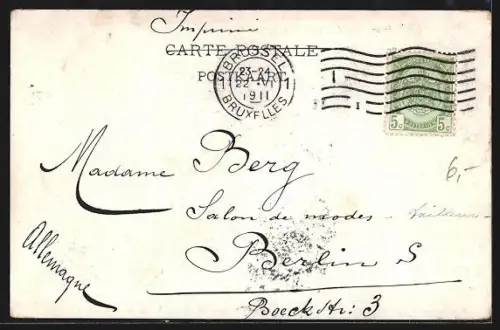 Imprimé
CARTE POSTALE
POSTKAART
BRUSSEL
23-24
1 22 VI 1
1911
BRUXELLES
1
5c 5c
6,-
Madame Berg
Salon de modes - tailleur -
Berlin S
Boeckstr: 3
Allemagne